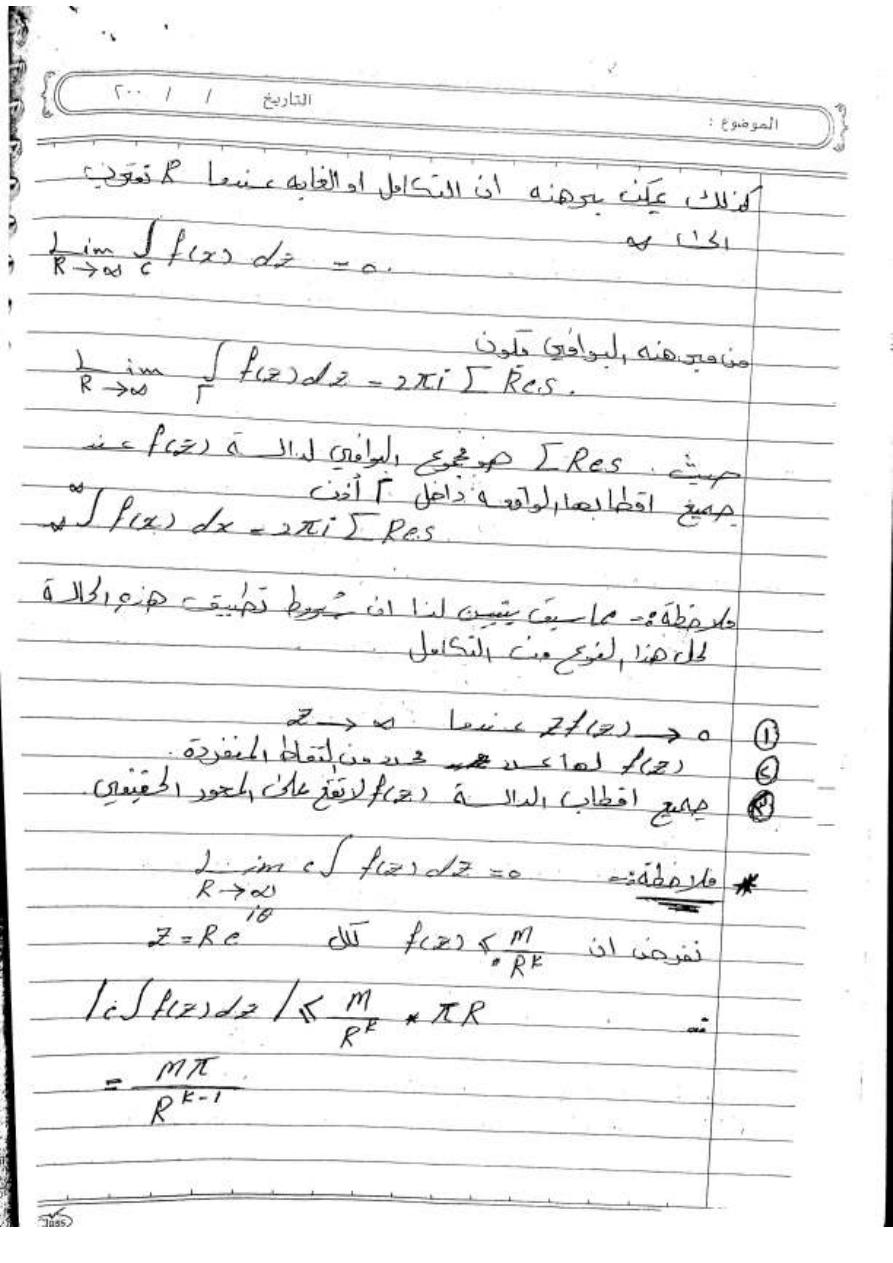 التاريخ / / ٢٠٠
الموضوع :
كذلك يمكن برهنه ان التكامل او الغايه عندما R تؤول
الى ∞
Lim ∫ f(x) dz = 0.
R→∞ c
من مبرهنه البواقي تكون
Lim ∫ f(z) dz = 2πi Σ Res.
R→∞ Γ
حيث Σ Res هو مجموع البواقي لدالة f(z) عند
جميع اقطابها الواقعه داخل Γ أذن
∞
∞ ∫ f(x) dx = 2πi Σ Res
ملاحظة :- مما سبق يتبين لنا ان شروط تطبيق هذه الحالة
لحل هذا النوع من التكامل
① Zf(z) → 0 عندما Z → ∞
② f(z) لها عدد محدد من النقاط المنفردة .
③ جميع اقطاب الدالة f(z) لا تقع على المحور الحقيقي .
* ملاحظة :- Lim c∫ f(z) dz = 0
R→∞
نفرض ان f(z) ≤ M/R^k لكل Z = Re^iθ
∴ |c∫ f(z) dz| ≤ M/R^k * πR
= Mπ/R^k-1